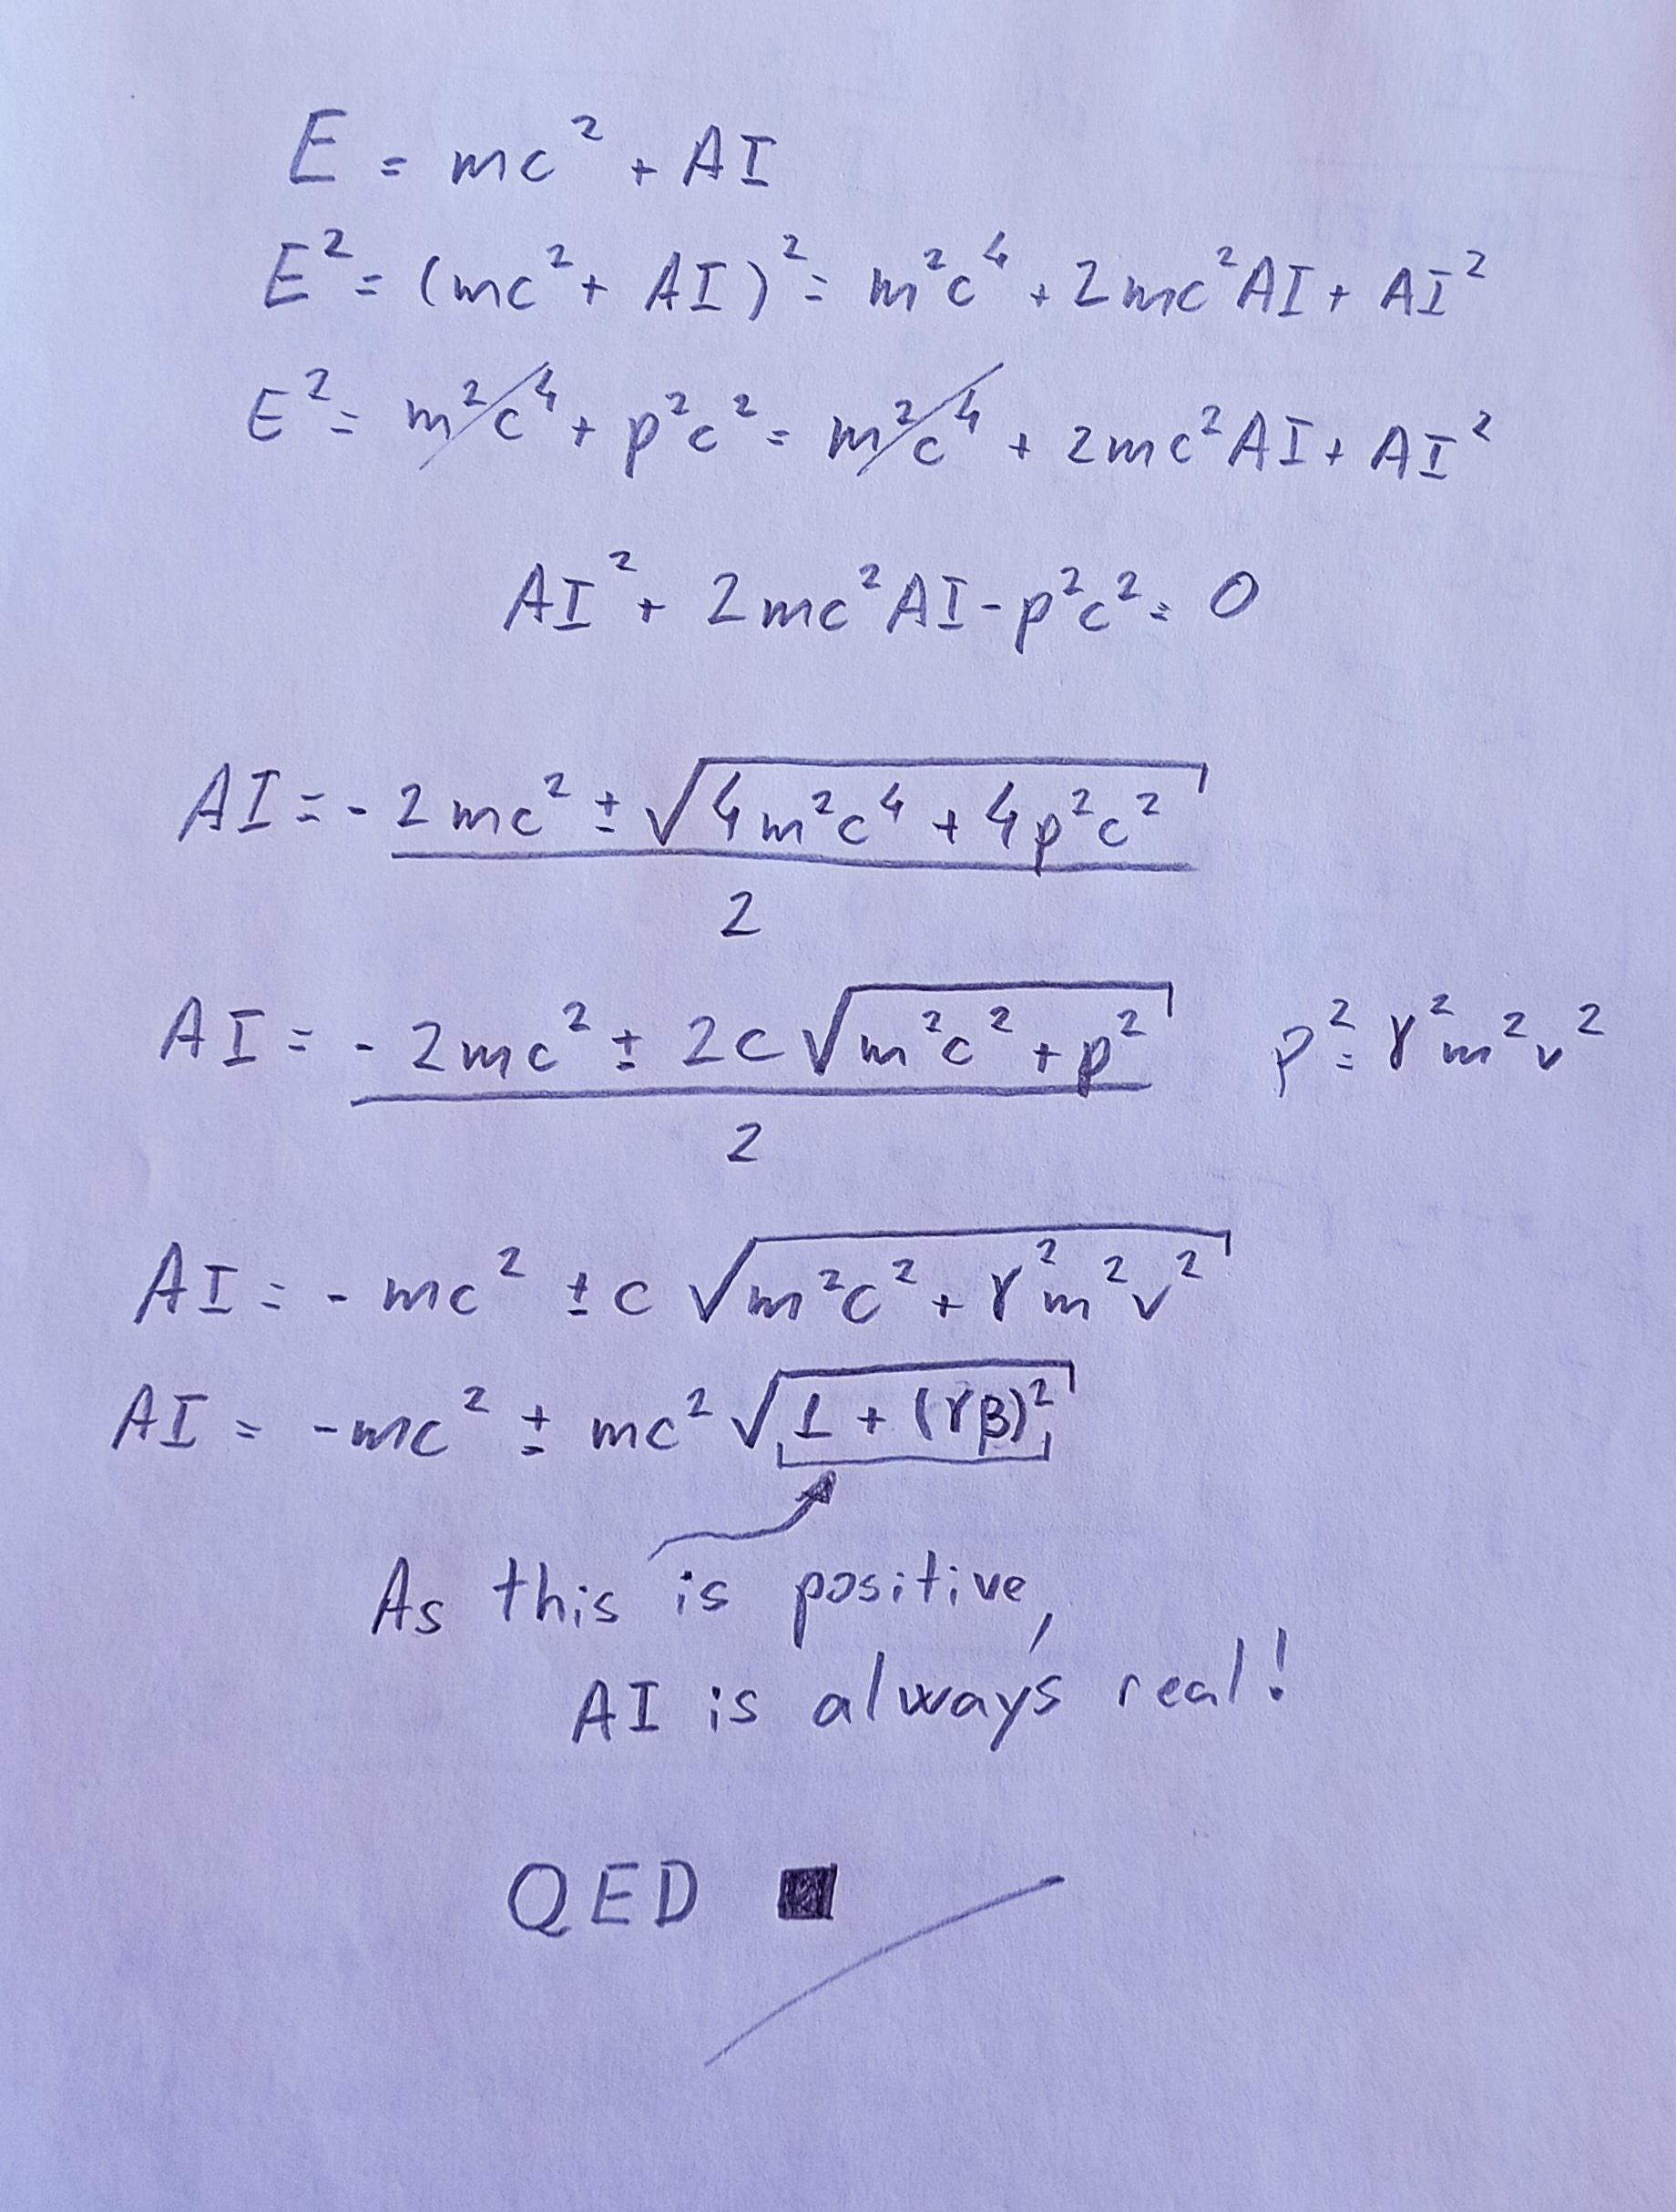 E = mc² + AI
E² = (mc² + AI)² = m²c⁴ + 2mc²AI + AI²
E² = m²c⁴ + p²c² = m²c⁴ + 2mc²AI + AI²
AI² + 2mc²AI - p²c² = 0
AI = - 2mc² ± √(4m²c⁴ + 4p²c²)
2
AI = - 2mc² ± 2c √(m²c² + p²) p² = γ²m²v²
2
AI = - mc² ± c √(m²c² + γ²m²v²)
AI = -mc² ± mc² √(1 + (γβ)²)
As this is positive,
AI is always real!
QED ■